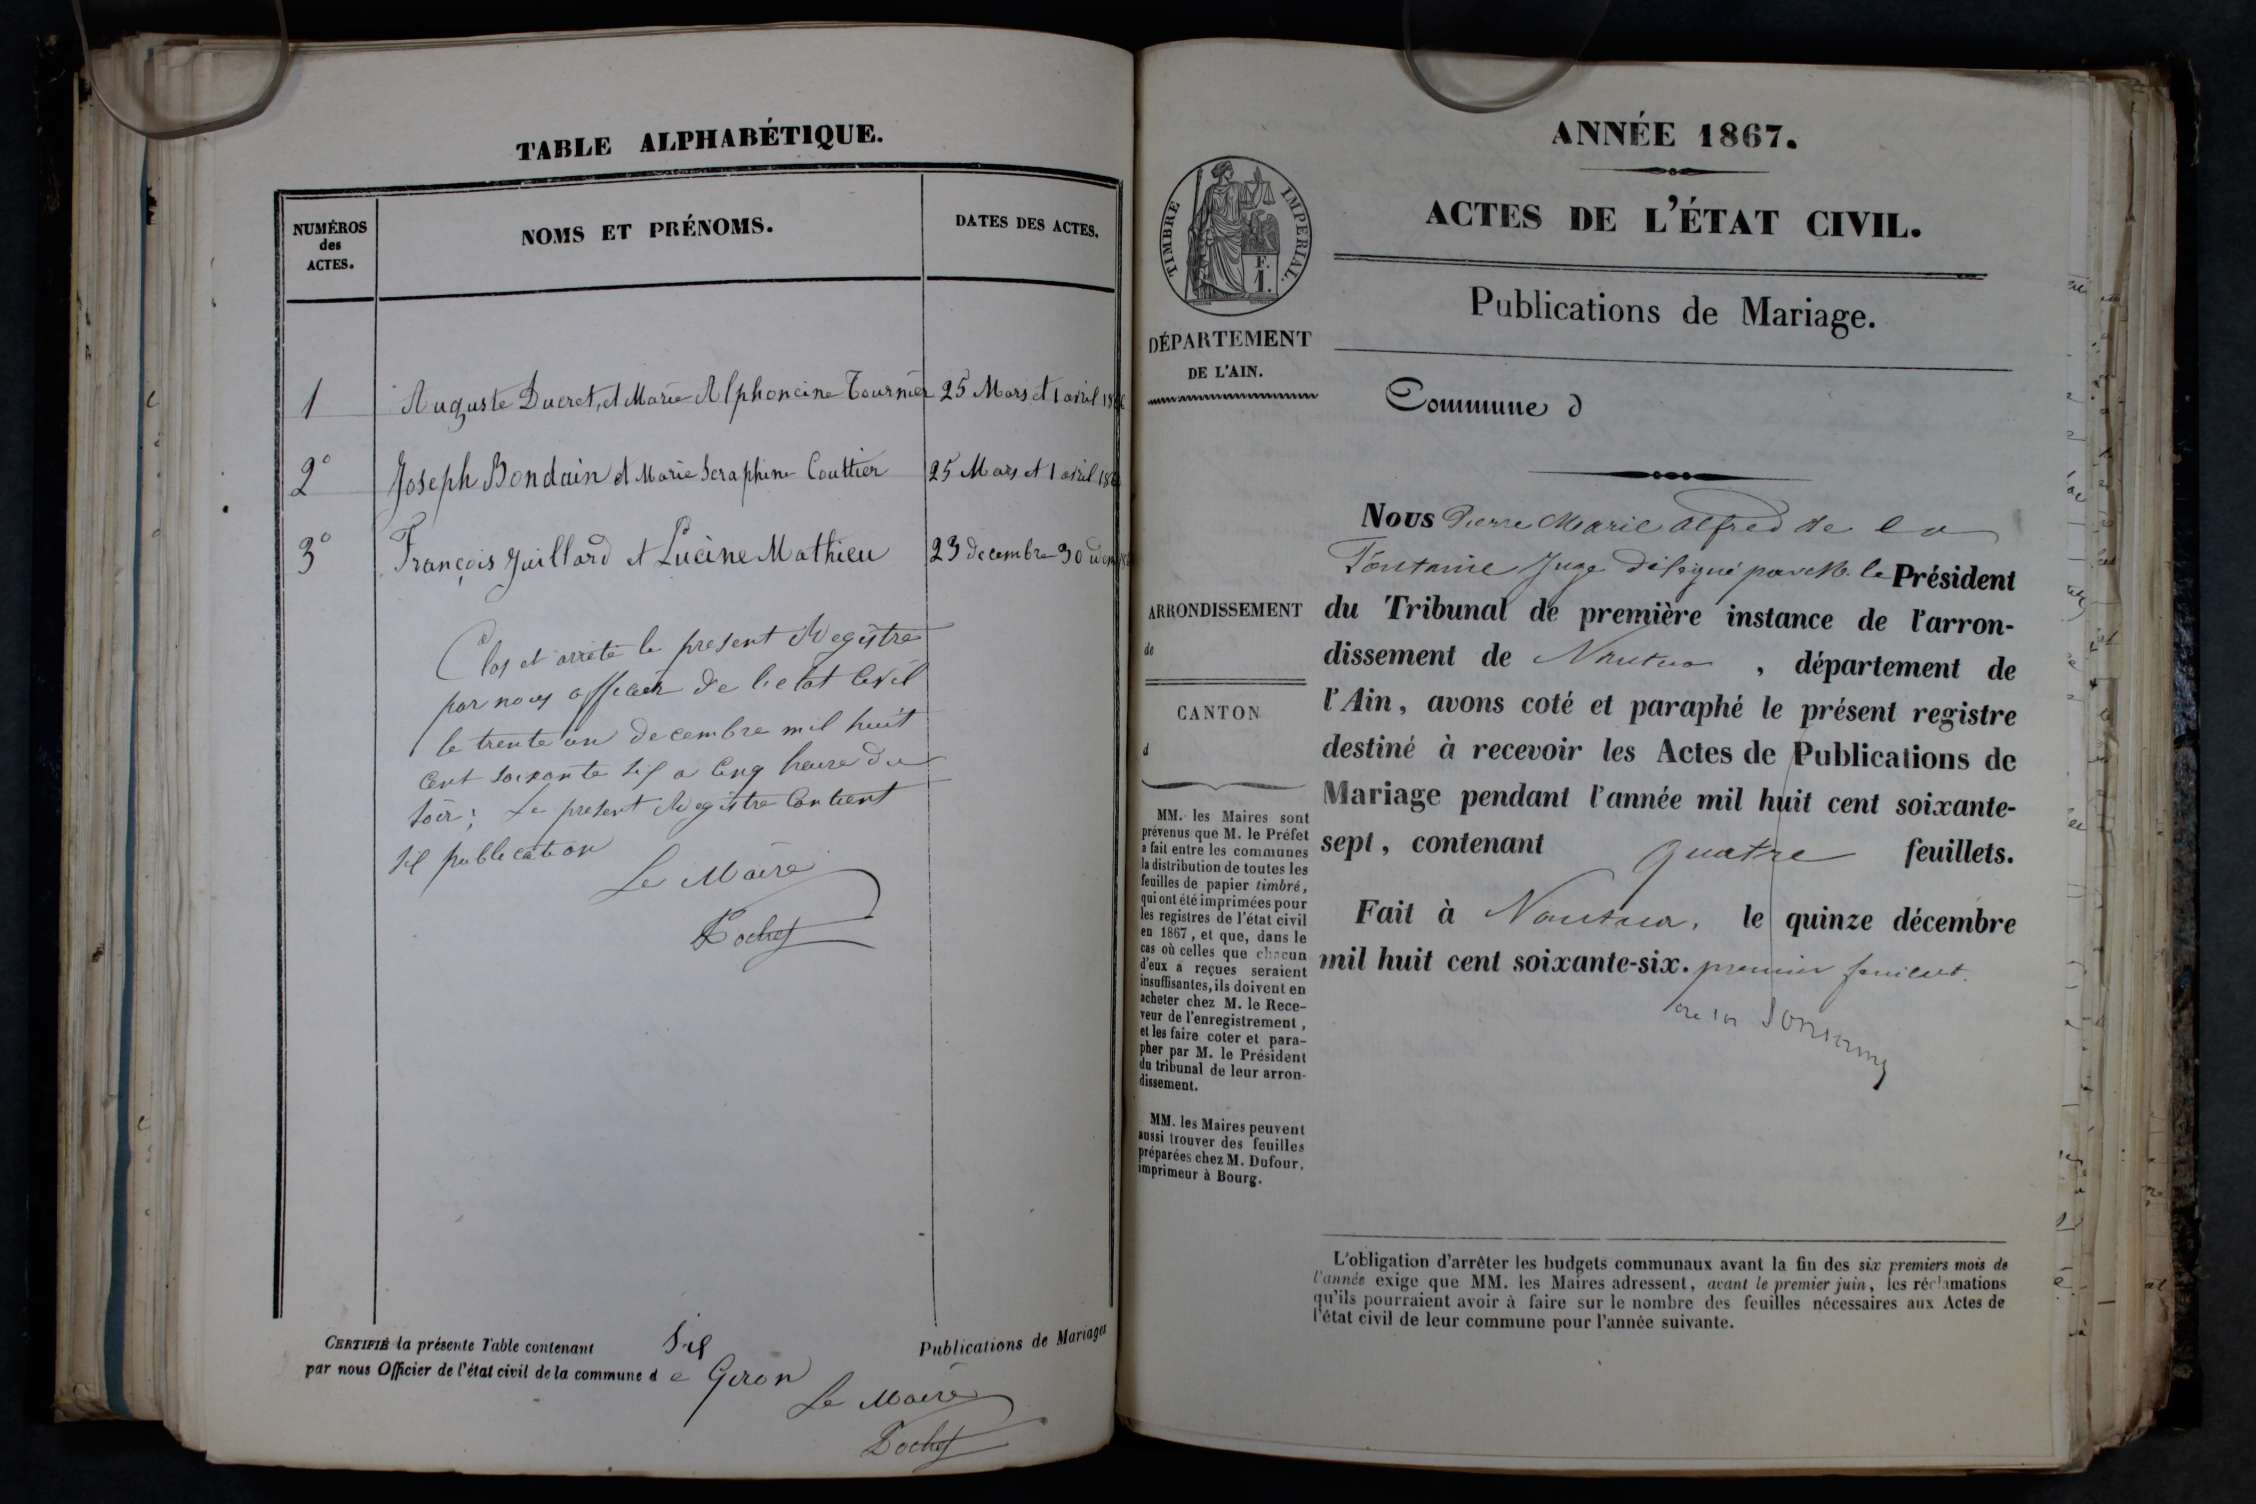 TABLE ALPHABÉTIQUE.
NUMÉROS
des
ACTES.
NOMS ET PRÉNOMS.
DATES DES ACTES.
1 Auguste Ducret, et Marie Alphoncine Tournier 25 Mars et 1 avril
2° Joseph Bondain et Marie Seraphine Couttier 25 Mars et 1 avril
3° François Juillard et Lucine Mathieu 23 decembre 30
Clos et arrêté le present Registre
par nous officier de l'etat Civil
le trente un decembre mil huit
cent soixante six a cinq heure du
soir; Le present Registre Contient
six publication
Le Maire
CERTIFIÉ la présente Table contenant six Publications de Mariages
par nous Officier de l'état civil de la commune d e Giron
Le Maire
ANNÉE 1867.
ACTES DE L'ÉTAT CIVIL.
Publications de Mariage.
Commune d
TIMBRE IMPERIAL.
F.
1.
DÉPARTEMENT
DE L'AIN.
ARRONDISSEMENT
de
CANTON
d
MM. les Maires sont
prévenus que M. le Préfet
a fait entre les communes
la distribution de toutes les
feuilles de papier timbré,
qui ont été imprimées pour
les registres de l'état civil
en 1867, et que, dans le
cas où celles que chacun
d'eux a reçues seraient
insuffisantes, ils doivent en
acheter chez M. le Rece-
veur de l'enregistrement,
et les faire coter et para-
pher par M. le Président
du tribunal de leur arron-
dissement.
MM. les Maires peuvent
aussi trouver des feuilles
préparées chez M. Dufour,
imprimeur à Bourg.
Nous Pierre Marie Alfred de la
Fontaine Juge délégué par Mr. le Président
du Tribunal de première instance de l'arron-
dissement de Nantua, département de
l'Ain, avons coté et paraphé le présent registre
destiné à recevoir les Actes de Publications de
Mariage pendant l'année mil huit cent soixante-
sept, contenant quatre feuillets.
Fait à Nantua, le quinze décembre
mil huit cent soixante-six. premier feuillet.
L'obligation d'arrêter les budgets communaux avant la fin des six premiers mois de
l'année exige que MM. les Maires adressent, avant le premier juin, les réclamations
qu'ils pourraient avoir à faire sur le nombre des feuilles nécessaires aux Actes de
l'état civil de leur commune pour l'année suivante.